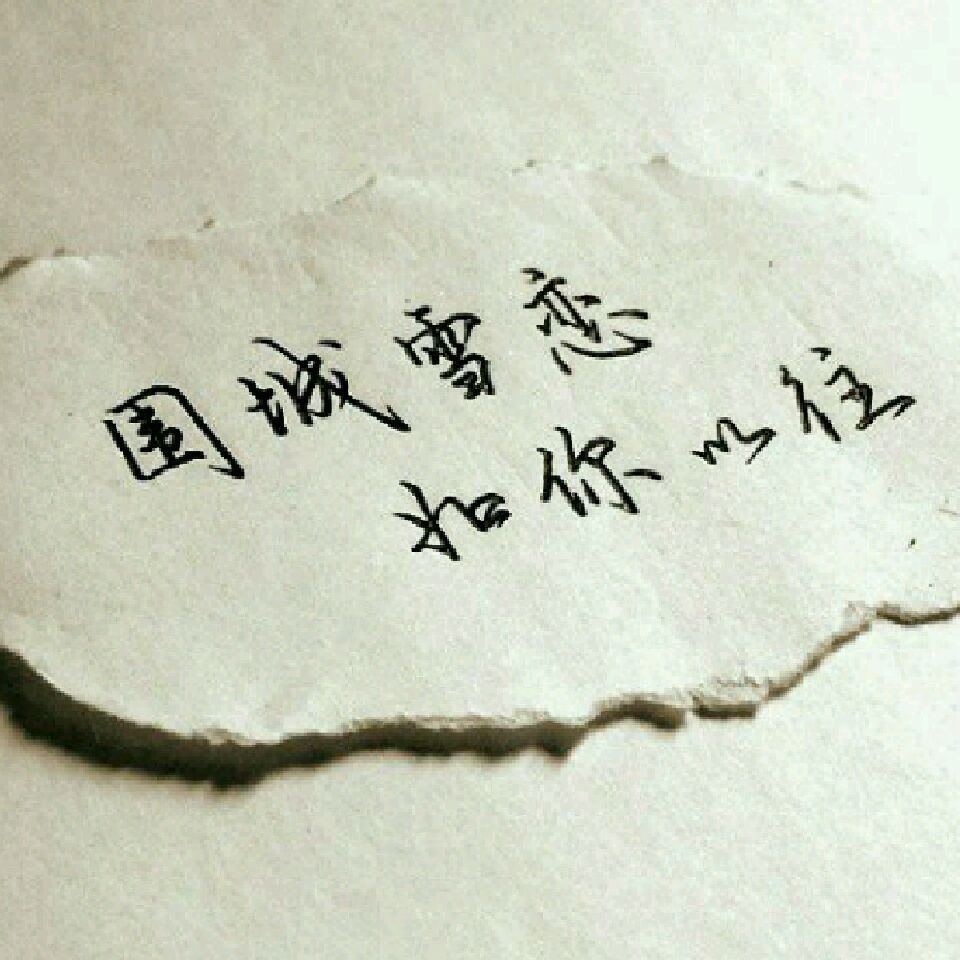 围城雪恋
如你以往